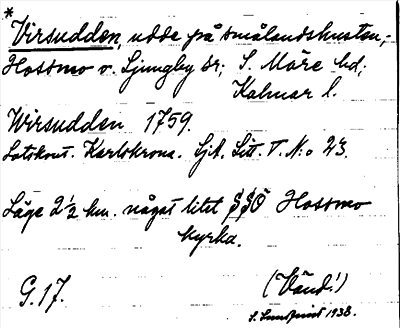 *
Virsudden, udde på smålandskusten,-
Hossmo o. Ljungby sr; S. Möre hd,
Kalmar l.
Wirsudden 1759.
Lotskont. Karlskrona. Sjk. Litt. T. N:o 23.
Läge 2 1/2 km. något litet SSÖ Hossmo
kyrka.
G. 17.
(Vänd!)
S. Lundquist 1938.